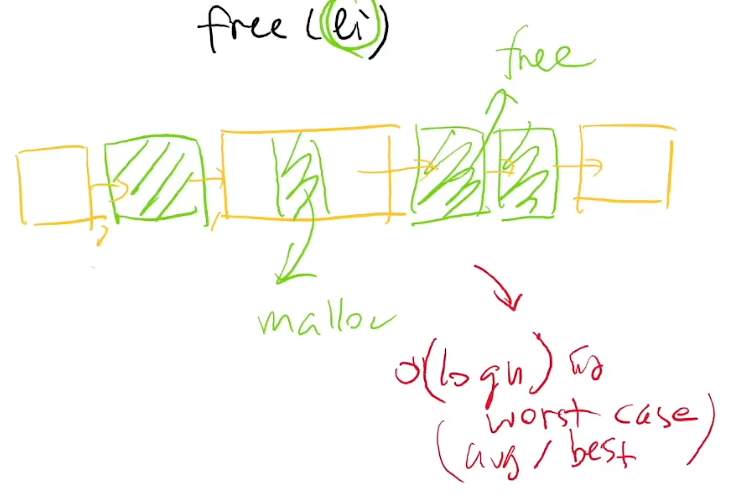 free (li)
free
malloc
O(log n)
worst case
(avg / best)